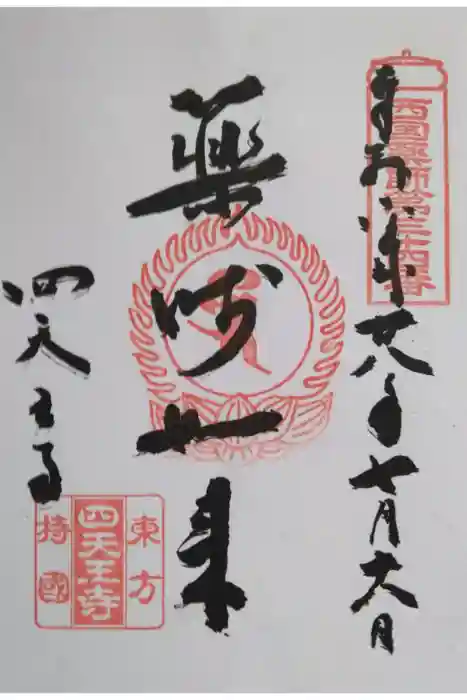 奉拝 平成廿八年七月十六日
西國薬師第三十四番
薬師如来
四天王寺
東方
四天王寺
持國